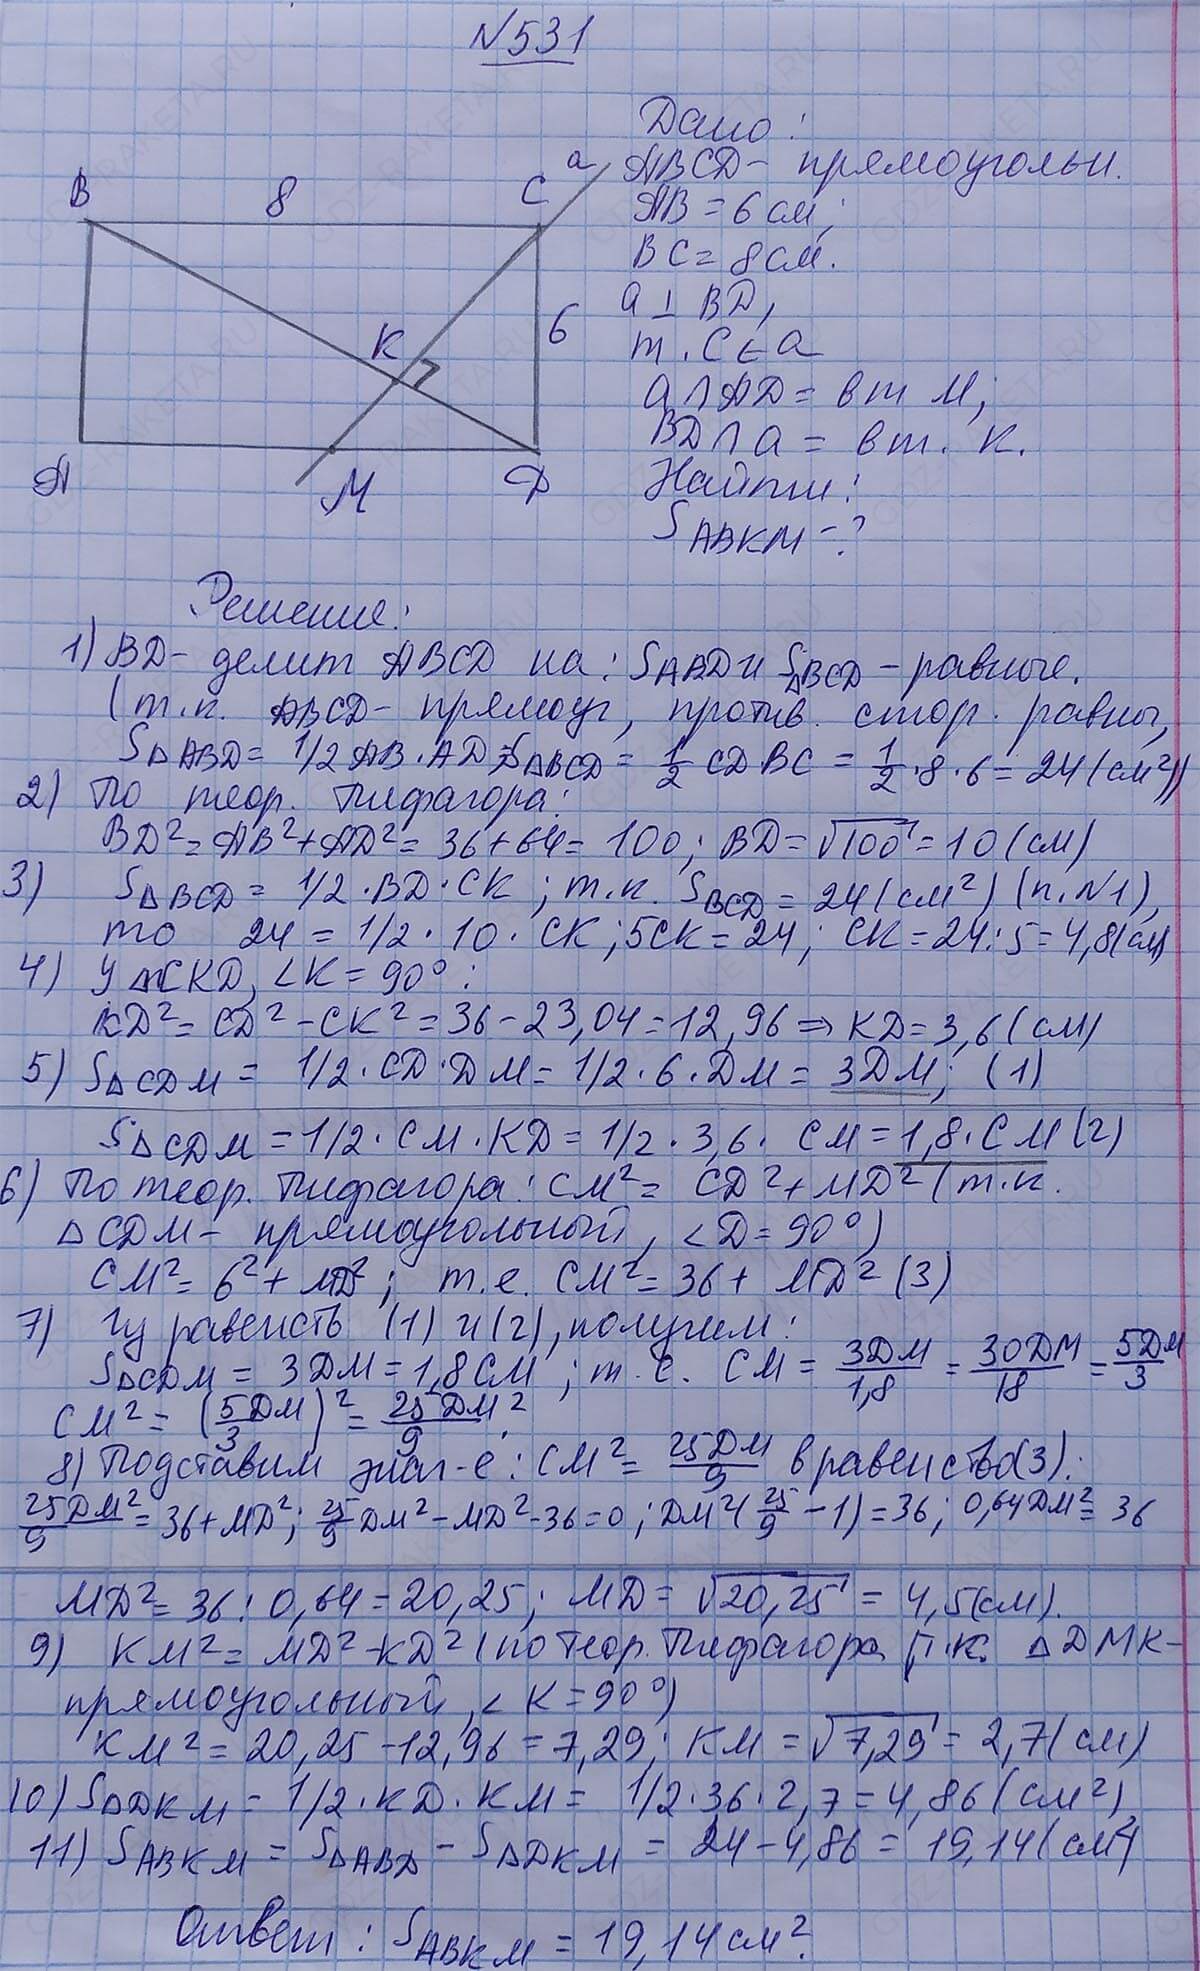 N531
Дано:
a ABCD - прямоугольн.
B 8 C AB = 6 см;
BC = 8 см.
a ⊥ BD,
6
K т. C ∈ a
a ∩ AD = в т M;
BD ∩ a = в т. K.
A M D Найти:
S ABKM - ?
Решение:
1) BD - делит ABCD на: S ABD и S△BCD - равные.
(т.к. ABCD - прямоуг, против. стор. равны,
S△ABD = 1/2 AB · AD = S△BCD = 1/2 CD BC = 1/2 · 8 · 6 = 24 (см²))
2) По теор. Пифагора:
BD² = AB² + AD² = 36 + 64 = 100; BD = √100 = 10 (см)
3) S△BCD = 1/2 · BD · CK; т.к. S BCD = 24 (см²) (п. N1),
то 24 = 1/2 · 10 · CK; 5CK = 24; CK = 24 : 5 = 4,8 (см)
4) У △CKD, ∠K = 90° :
KD² = CD² - CK² = 36 - 23,04 = 12,96 ⇒ KD = 3,6 (см)
5) S△CDM = 1/2 · CD · DM = 1/2 · 6 · DM = 3DM; (1)
S△CDM = 1/2 · CM · KD = 1/2 · 3,6 · CM = 1,8 · CM (2)
6) По теор. Пифагора: CM² = CD² + MD² (т.к.
△CDM - прямоугольный, ∠D = 90°)
CM² = 6² + MD²; т.е. CM² = 36 + MD² (3)
7) Из равенств (1) и (2), получим:
S△CDM = 3DM = 1,8CM; т.е. CM = 3DM/1,8 = 30DM/18 = 5DM/3
CM² = (5DM/3)² = 25DM²/9.
8) Подставим знач-е: CM² = 25DM/9 в равенство (3):
25DM²/9 = 36 + MD²; 25/9 DM² - MD² - 36 = 0; DM² (25/9 - 1) = 36; 0,64DM² = 36
MD² = 36 : 0,64 = 20,25; MD = √20,25 = 4,5 (см).
9) KM² = MD² - KD² (по теор. Пифагора, т.к. △DMK -
прямоугольный, ∠K = 90°)
KM² = 20,25 - 12,96 = 7,29; KM = √7,29 = 2,7 (см)
10) S△DKM = 1/2 · KD · KM = 1/2 · 36 · 2,7 = 4,86 (см²)
11) S ABKM = S△ABD - S△DKM = 24 - 4,86 = 19,14 (см²)
Ответ: S ABKM = 19,14 см².